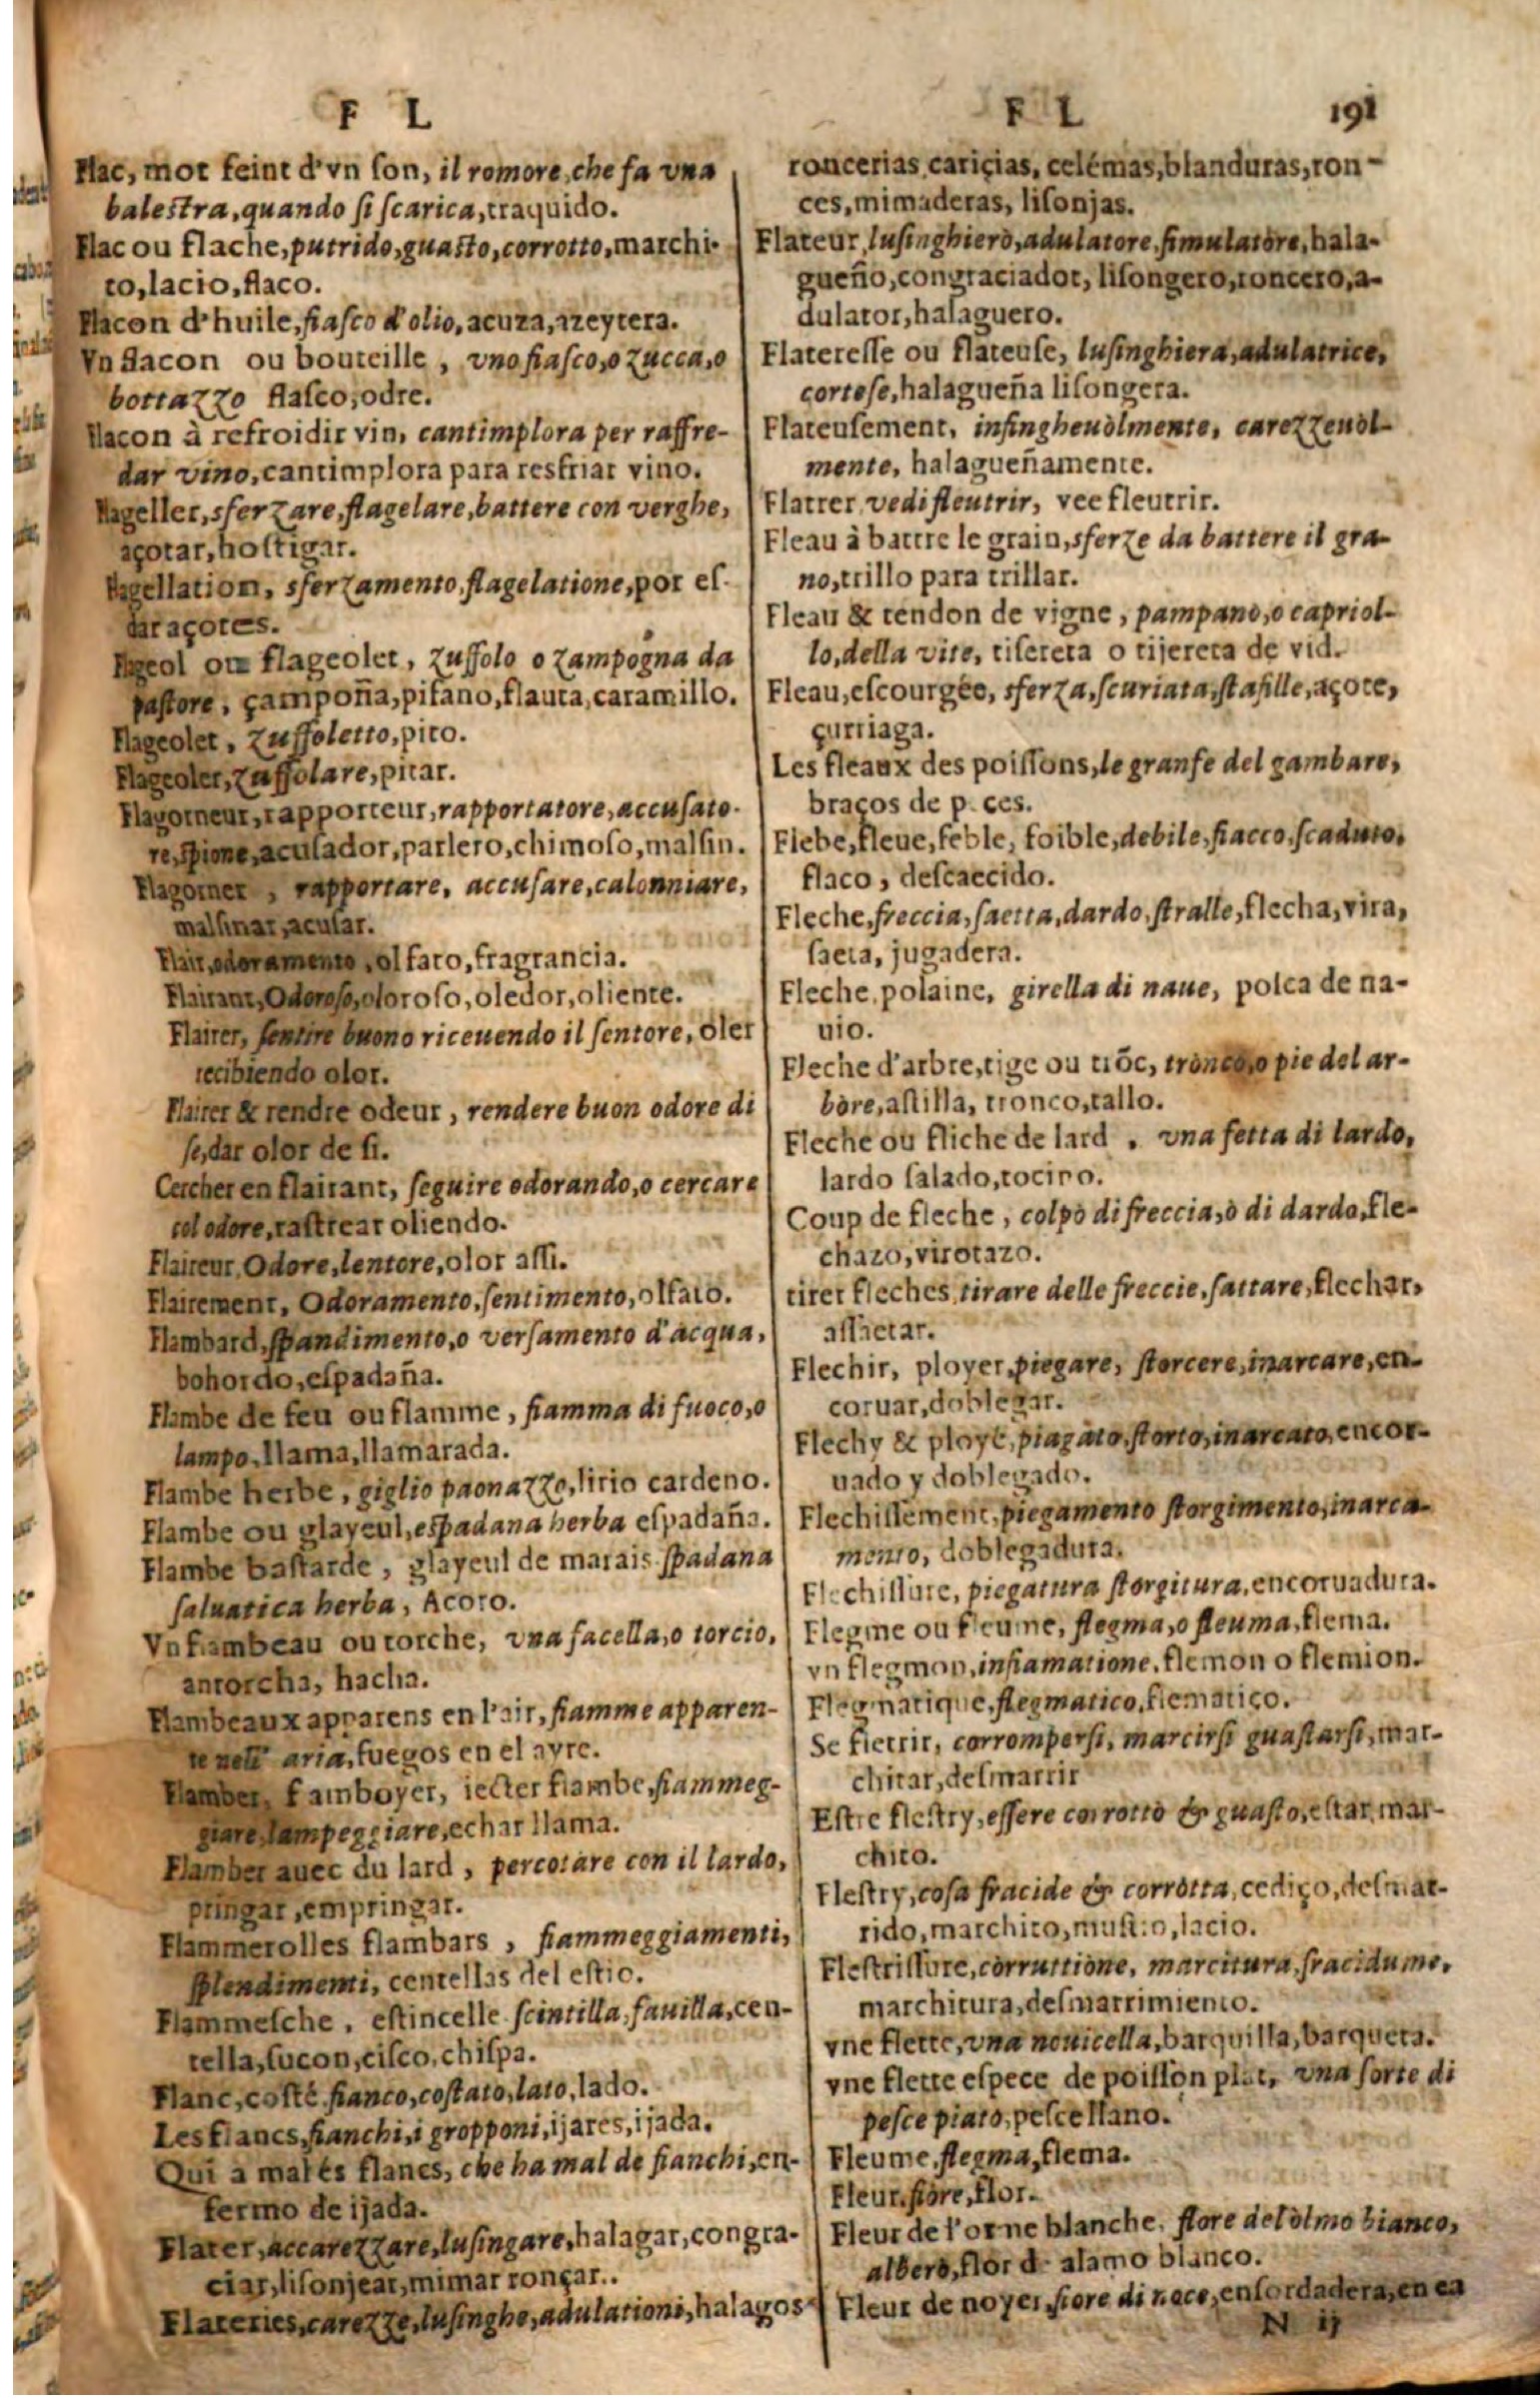 F L
Flac, mot feint d'vn ſon, il romore, che fa vna
baleſtra, quando ſi ſcarica, traquido.
Flac ou flache, putrido, guaſto, corrotto, marchi-
to, lacio, flaco.
Flacon d'huile, fiaſco d'olio, acuza, azeytera.
Vn flacon ou bouteille, vno fiaſco, o zucca, o
bottazzo flaſco, odre.
flacon à refroidir vin, cantimplora per raffre-
dar vino, cantimplora para resfriar vino.
flageller, sferzare, flagelare, battere con verghe,
açotar, hoſtigar.
flagellation, sferzamento, flagelatione, por eſ-
dar açotes.
flageol ou flageolet, zuffolo o zampogna da
paſtore, çampoña, pifano, flauta, caramillo.
Flageolet, zuffoletto, pito.
Flageoler, zuffolare, pitar.
Flagorneur, rapporteur, rapportatore, accuſato-
re, ſpione, acuſador, parlero, chimoſo, malſin.
Flagorner, rapportare, accuſare, calonniare,
malſinar, acuſar.
Flair, odoramento, olfato, fragrancia.
Flairant, Odoroſo, oloroſo, oledor, oliente.
Flairer, ſentire buono riceuendo il ſentore, oler
recibiendo olor.
Flairer & rendre odeur, rendere buon odore di
ſe, dar olor de ſi.
Cercher en flairant, ſeguire odorando, o cercare
col odore, raſtrear oliendo.
Flaireur, Odore, lentore, olor aſſi.
Flairement, Odoramento, ſentimento, olfato.
Flambard, ſpandimento, o verſamento d'acqua,
bohordo, eſpadaña.
Flambe de feu ou flamme, fiamma di fuoco, o
lampo, llama, llamarada.
Flambe herbe, giglio paonazzo, lirio cardeno.
Flambe ou glayeul, eſpadana herba eſpadaña.
Flambe baſtarde, glayeul de marais ſpadana
ſaluatica herba, Acoro.
Vn flambeau ou torche, vna facella, o torcio,
antorcha, hacha.
Flambeaux apparens en l'air, fiamme apparen-
te nell' aria, fuegos en el ayre.
Flamber, flamboyer, iecter flambe, fiammeg-
giare, lampeggiare, echar llama.
Flamber auec du lard, percotare con il lardo,
pringar, empringar.
Flammerolles flambars, fiammeggiamenti,
ſplendimenti, centellas del eſtio.
Flammeſche, eſtincelle ſcintilla, fauilla, cen-
tella, fucon, ciſco, chiſpa.
Flanc, coſté fianco, coſtato, lato, lado.
Les flancs, fianchi, i gropponi, ijares, ijada.
Qui a mal és flancs, che ha mal de fianchi, en-
fermo de ijada.
Flater, accarezzare, luſingare, halagar, congra-
ciar, liſonjear, mimar ronçar..
Flateries, carezze, luſinghe, adulationi, halagos
F L 191
roncerias, cariçias, celémas, blanduras, ron-
ces, mimaderas, liſonjas.
Flateur, luſinghierò, adulatore, ſimulatore, hala-
gueño, congraciador, liſongero, roncero, a-
dulator, halaguero.
Flatereſſe ou flateuſe, luſinghiera, adulatrice,
corteſe, halagueña liſongera.
Flateuſement, inſingheuòlmente, carezzeuòl-
mente, halagueñamente.
Flatrer, vedi fleutrir, vee fleutrir.
Fleau à battre le grain, sferze da battere il gra-
no, trillo para trillar.
Fleau & tendon de vigne, pampanò, o capriol-
lo, della vite, tiſereta o tijereta de vid.
Fleau, eſcourgée, sferza, ſcuriata, ſtafille, açote,
çurriaga.
Les fleaux des poiſſons, le granfe del gambare,
braços de p ces.
Flebe, fleue, feble, foible, debile, fiacco, ſcaduto,
flaco, deſcaecido.
Fleche, freccia, ſaetta, dardo, ſtralle, flecha, vira,
ſaeta, jugadera.
Fleche, polaine, girella di naue, polea de na-
uio.
Fleche d'arbre, tige ou trõc, tronco, o pie del ar-
bòre, aſtilla, tronco, tallo.
Fleche ou fliche de lard, vna fetta di lardo,
lardo ſalado, tocino.
Coup de fleche, colpò di freccia, ò di dardo, fle-
chazo, virotazo.
tirer fleches, tirare delle freccie, ſattare, flechar,
aſſaetar.
Flechir, ployer, piegare, ſtorcere, inarcare, en-
coruar, doblegar.
Flechy & ployé, piagàto, ſtorto, inarcato, encor-
uado y doblegado.
Flechiſſement, piegamento ſtorgimento, inarca-
mento, doblegadura.
Flechiſſure, piegatura ſtorgitura, encoruadura.
Flegme ou fleume, flegma, o fleuma, flema.
vn flegmon, infiamatione, flemon o flemion.
Flegmatique, flegmatico, flematico.
Se fletrir, corromperſi, marcirſi guaſtarſi, mar-
chitar, deſmarrir
Eſtre fleſtry, eſſere corrottò & guaſto, eſtar mar-
chito.
Fleſtry, coſa fracide & corròtta, cediço, deſmar-
rido, marchito, muſtio, lacio.
Fleſtriſſure, còrruttiòne, marcitura, fracidume,
marchitura, deſmarrimiento.
vne flette, vna nauicella, barquilla, barqueta.
vne flette eſpece de poiſſon plat, vna ſorte di
peſce piatò, peſce llano.
Fleume, flegma, flema.
Fleur, fiòre, flor.
Fleur de l'orne blanche, flore del òlmo bianco,
alberò, flor d alamo blanco.
Fleur de noyer, fiore di noce, enſordadera, en ea
N ij